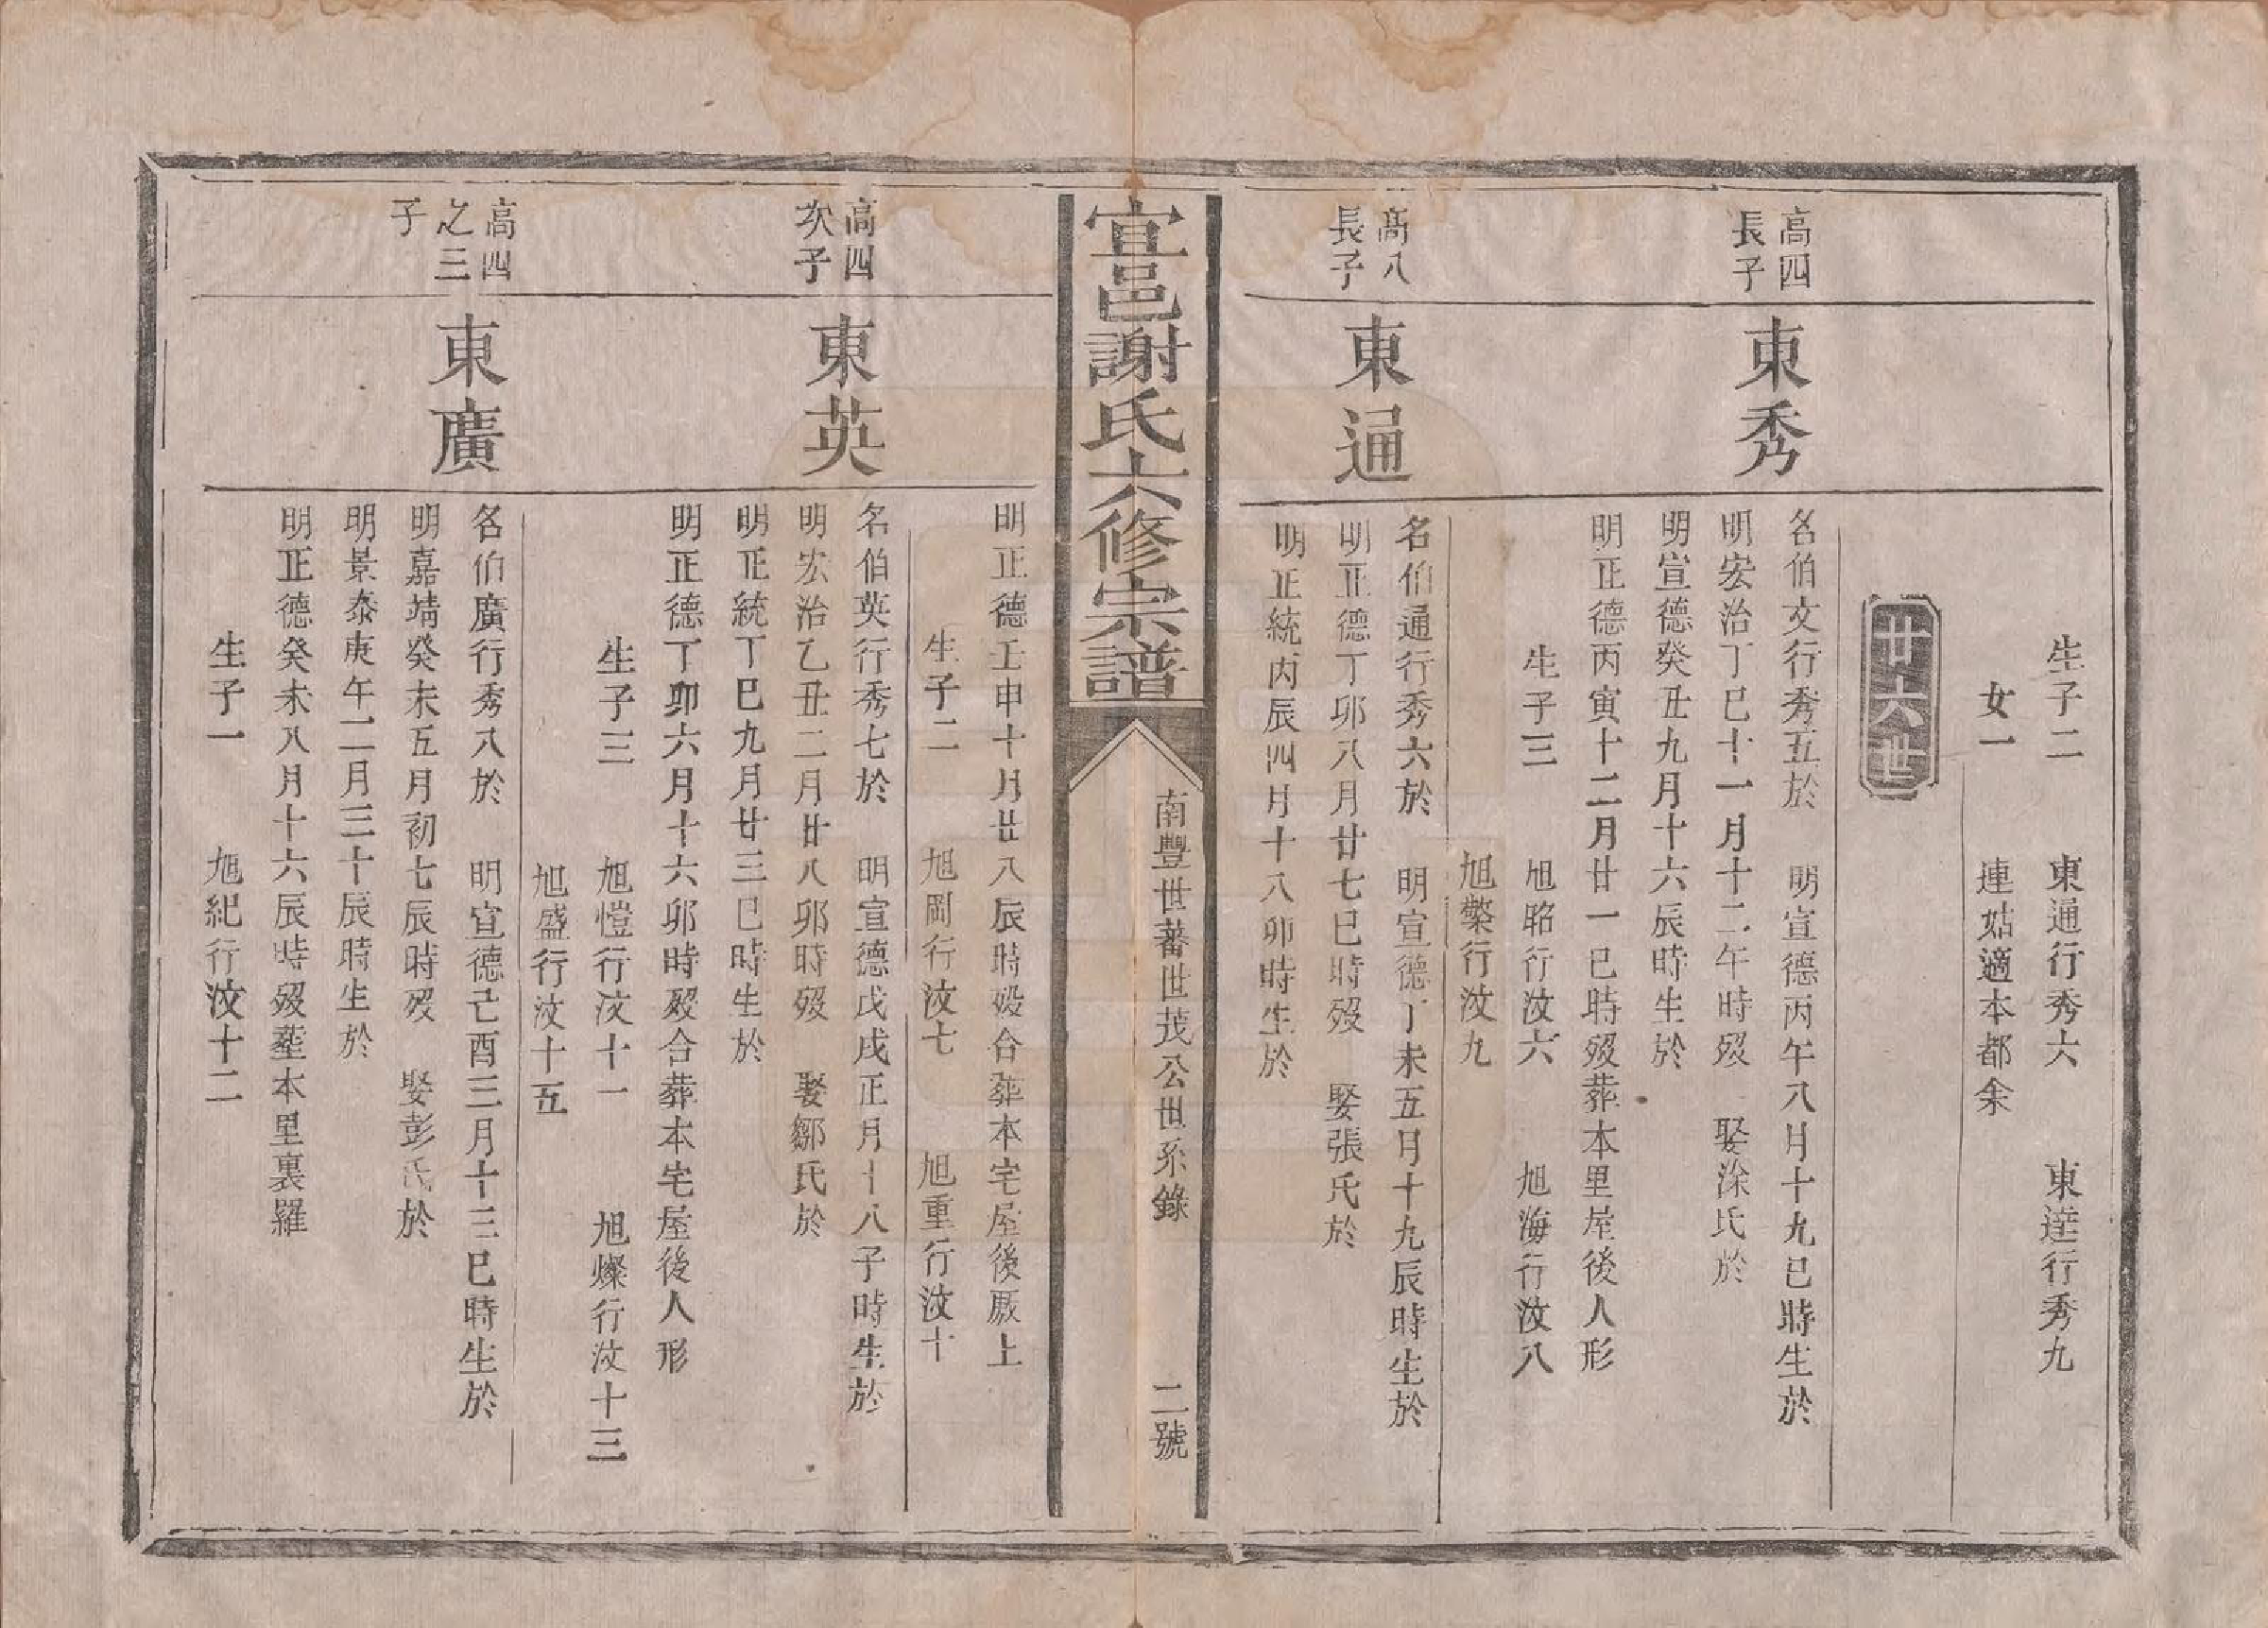 生子二　東通行秀六　東達行秀九
女一　連姑適本都余
廿六世
高四
長子
東秀
名伯文行秀五於　明宣德丙午八月十九巳時生於
明宏治丁巳十一月十二午時歿　娶涂氏於
明宣德癸丑九月十六辰時生於
明正德丙寅十二月廿一巳時歿葬本里屋後人形
生子三　旭昭行汶六　旭海行汶八
旭檠行汶九
高八
長子
東通
名伯通行秀六於　明宣德丁未五月十九辰時生於
明正德丁卯八月廿七巳時歿　娶張氏於
明正統丙辰四月十八卯時生於
宜邑謝氏六修宗譜
南豐世蕃世茂公世系錄　二號
明正德壬申十月廿八辰時歿合葬本宅屋後厫上
生子二　旭岡行汶七　旭重行汶十
高四
次子
東英
名伯英行秀七於　明宣德戊戌正月十八子時生於
明宏治乙丑二月廿八卯時歿　娶鄒氏於
明正統丁巳九月廿三巳時生於
明正德丁卯六月十六卯時歿合葬本宅屋後人形
生子三　旭愷行汶十一　旭燦行汶十三
旭盛行汶十五
高四
之三
子
東廣
名伯廣行秀八於　明宣德己酉三月十三巳時生於
明嘉靖癸未五月初七辰時歿　娶彭氏於
明景泰庚午二月三十辰時生於
明正德癸未八月十六辰時歿葬本里裏羅
生子一　旭紀行汶十二